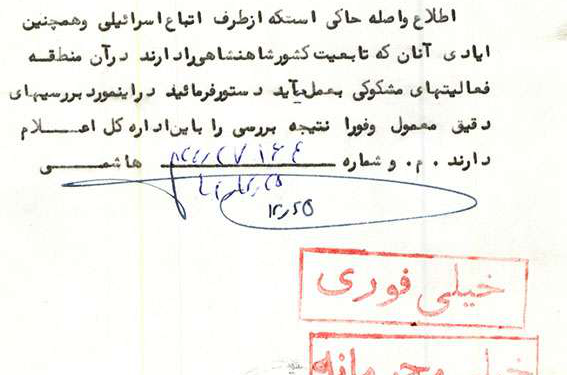 اطلاع واصله حاکی استکه ازطرف اتباع اسرائیلی وهمچنین
ایادی آنان که تابعیت کشورشاهنشاهی رادارند درآن منطقه
فعالیتهای مشکوکی بعمل میآید دستورفرمائید دراینمورد بررسیهای
دقیق معمول وفورا نتیجه بررسی را باین اداره کل اعــلام
دارند . م . و شماره هاشمــی
۱۲٫۲۵
خیلی فوری
خیلی محرمانه